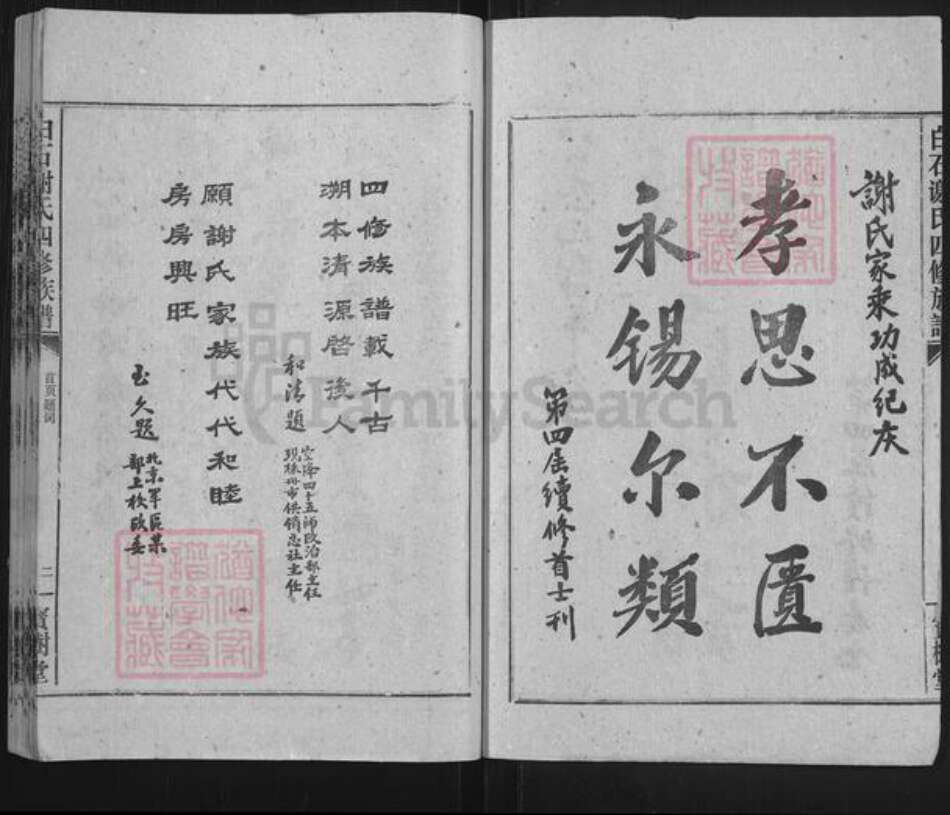 白石謝氏四修族譜
謝氏家乘功成纪庆
孝思不匱
永锡尔類
第四届續修首士刊
四修族譜載千古
溯本清源啓後人
和清題
空降四十五師政治部主任
现株州市供销总社主任
願謝氏家族代代和睦
房房興旺
玉久題
北京军区某
部上校政委
白石謝氏四修族譜
首页题词
二
寶樹堂
FamilySearch